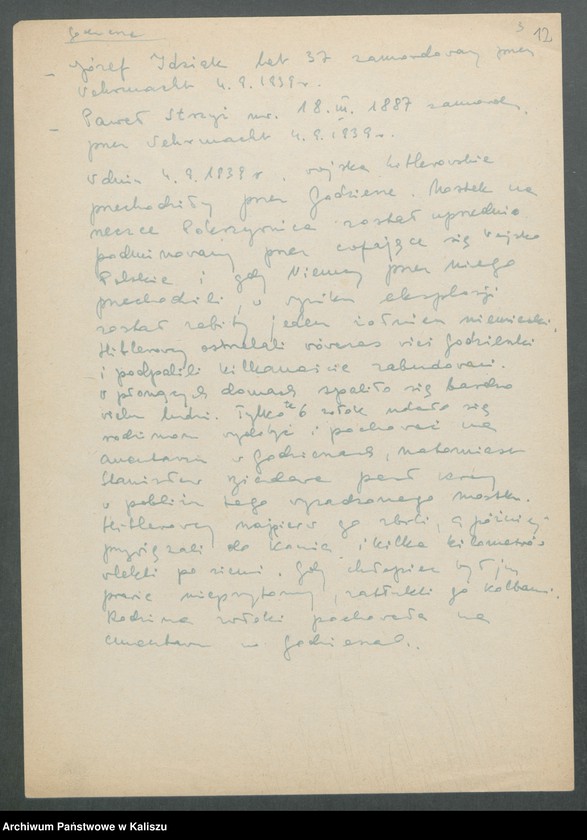 3 12
Godziesze
- Józef Idziak lat 37 zamordowany przez
Wehrmacht 4.9.1939 r.
- Paweł Strzyż ur. 18.III.1887 zamord.
przez Wehrmacht 4.9.1939 r.
W dniu 4.9.1939 r. wojska hitlerowskie
przechodziły przez Godziesze. Mostek na
rzece Pokrzywnica został uprzednio
podminowany przez cofające się wojsko
Polskie i gdy Niemcy przez niego
przechodzili, w wyniku eksplozji
został zabity jeden żołnierz niemiecki.
Hitlerowcy ostrzelali wówczas wieś Godzieszki
i podpalili kilkanaście zabudowań.
W płonących domach spaliło się bardzo
wielu ludzi. Tylko 6 zwłok udało się
rodzinom wydobyć i pochować na
cmentarzu w Godzieszach, natomiast
Stanisław pasł krowy
w pobliżu tego wysadzonego mostku.
Hitlerowcy najpierw go zbili, a później
przywiązali do konia i kilka kilometrów
wlekli po ziemi. Gdy chłopiec był już
prawie nieprzytomny, zatłukli go kolbami.
Rodzina zwłoki pochowała na
cmentarzu w Godzieszach.
Archiwum Państwowe w Kaliszu